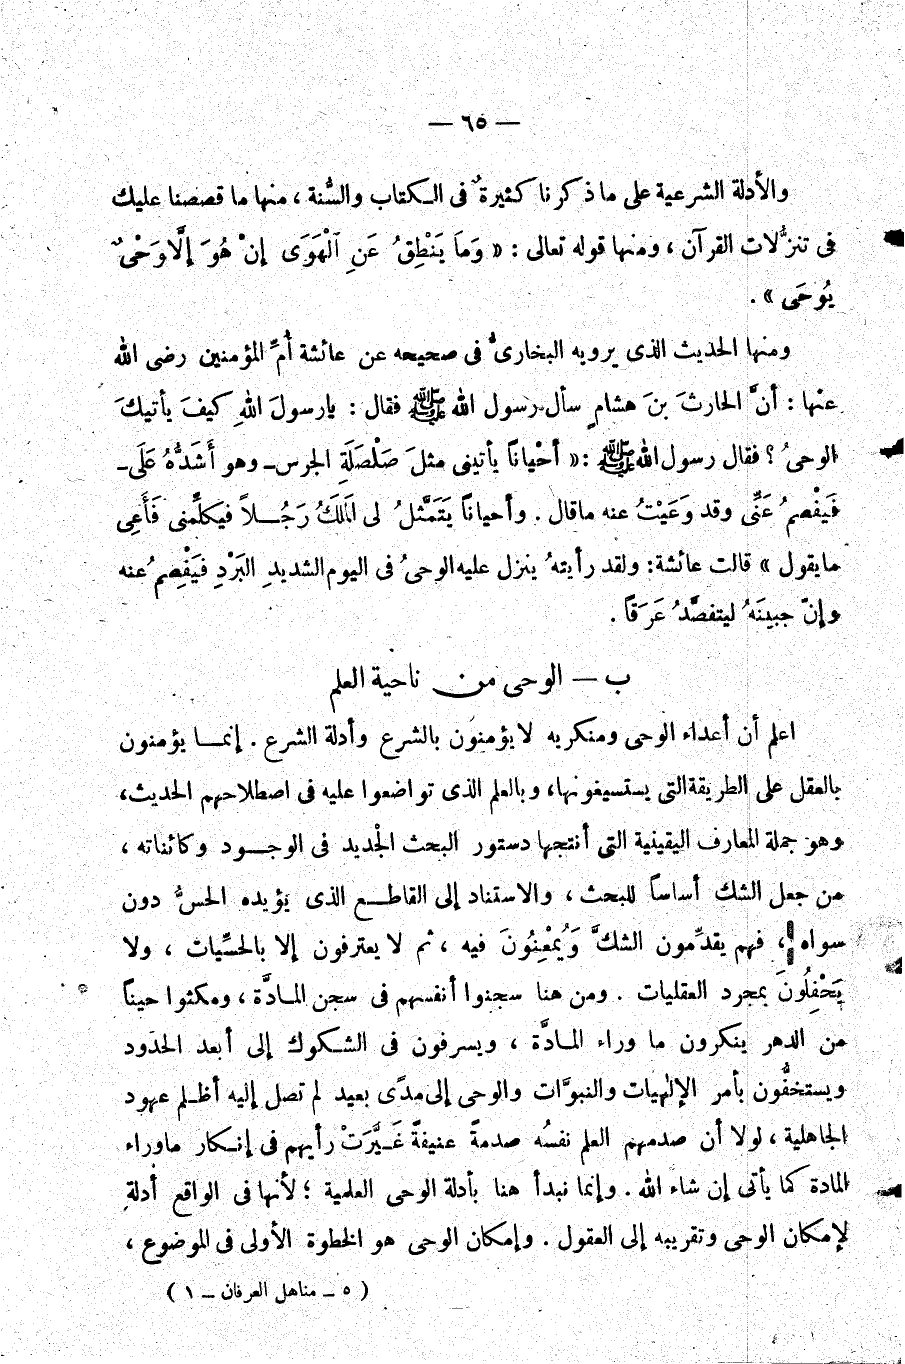 — ٦٥ —
والأدلة الشرعية على ما ذكرنا كثيرةٌ فى الكتاب والسُّنة ، منها ما قصصنا عليك
فى تنزُّلات القرآن ، ومنها قوله تعالى : « وَمَا يَنْطِقُ عَنِ الْهَوَى إِنْ هُوَ إِلَّا وَحْىٌ
يُوحَى » .
ومنها الحديث الذى يرويه البخارىُّ فى صحيحه عن عائشة أُمِّ المؤمنين رضى الله
عنها : أنَّ الحارثَ بنَ هشامٍ سأل رسول الله ﷺ فقال : يارسولَ اللهِ كيفَ يأتيكَ
الوحىُ ؟ فقال رسول الله ﷺ : « أحْياناً يأتينى مثلَ صَلْصَلَةِ الجرس ـ وهو أَشَدُّهُ عَلَى ـ
فَيَفْصِمُ عَنِّى وقد وَعَيْتُ عنه ماقال . وأحياناً يَتَمَثَّلُ لى المَلَكُ رَجُلاً فيَكلِّمنى فَأَعِى
مايقول » قالت عائشة : ولقد رأيتهُ ينزل عليه الوحىُ فى اليوم الشديدِ البَرْدِ فيَفْصِمُ عنه
وإنّ جبينَهُ ليتفصَّدُ عَرَقاً .
ب — الوحى من ناحية العلم
اعلم أن أعداء الوحى ومنكريه لا يؤمنون بالشرع وأدلة الشرع . إنما يؤمنون
بالعقل على الطريقة التى يستسيغونها، وبالعلم الذى تواضعوا عليه فى اصطلاحهم الحديث،
وهو جملة المعارف اليقينية التى أنتجها دستور البحث الجديد فى الوجود وكائناته ،
من جعل الشك أساساً للبحث ، والاستناد إلى القاطع الذى يؤيده الحسُّ دون
سواه ، فهم يقدِّمون الشكَّ وَيُمْعِنُونَ فيه ، ثم لا يعترفون إلا بالحسِّيات ، ولا
يَحْفِلُونَ بمجرد العقليات . ومن هنا سجنوا أنفسهم فى سجن المادَّة ، ومكثوا حيناً
من الدهر ينكرون ما وراء المادَّة ، ويسرفون فى الشكوك إلى أبعد الحدود
ويستخفُّون بأمر الإلهيات والنبوَّات والوحى إلى مدًى بعيد لم تصل إليه أظلم عهود
الجاهلية ، لولا أن صدمهم العلم نفسُه صدمةً عنيفةً غَيَّرَتْ رأيهم فى إنكار ماوراء
المادة كما يأتى إن شاء الله . وإنما نبدأ هنا بأدلة الوحى العلمية ؛ لأنها فى الواقع أدلة
لإمكان الوحى وتقريبه إلى العقول . وإمكان الوحى هو الخطوة الأولى فى الموضوع ،
( ٥ ـ مناهل العرفان ـ ١ )